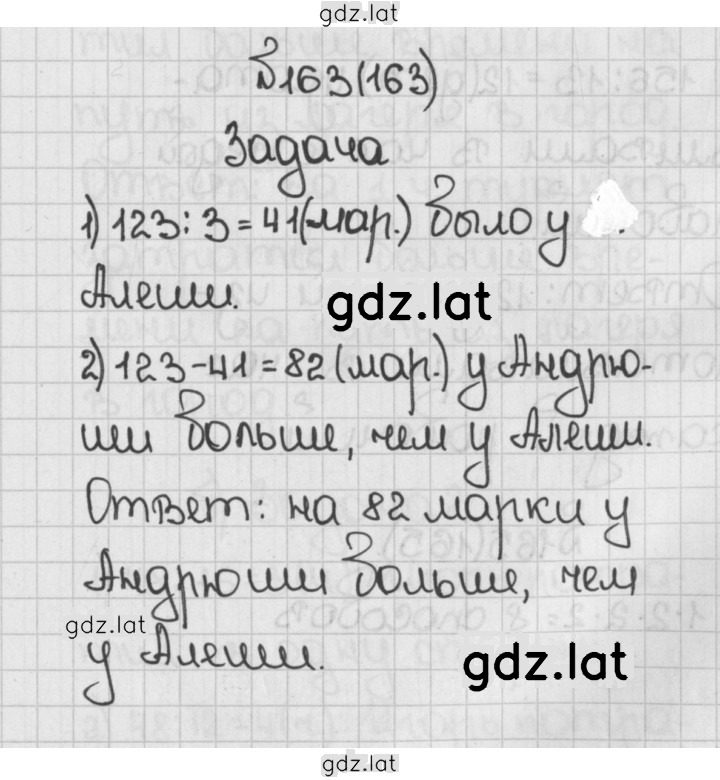 gdz.lat
№163(163)
Задача
1) 123:3=41(мар.) было у
Алеши.
gdz.lat
2) 123-41=82(мар.) у Андрю-
ши больше, чем у Алеши.
Ответ: на 82 марки у
Андрюши больше, чем
gdz.lat
у Алеши.
gdz.lat
gdz.lat